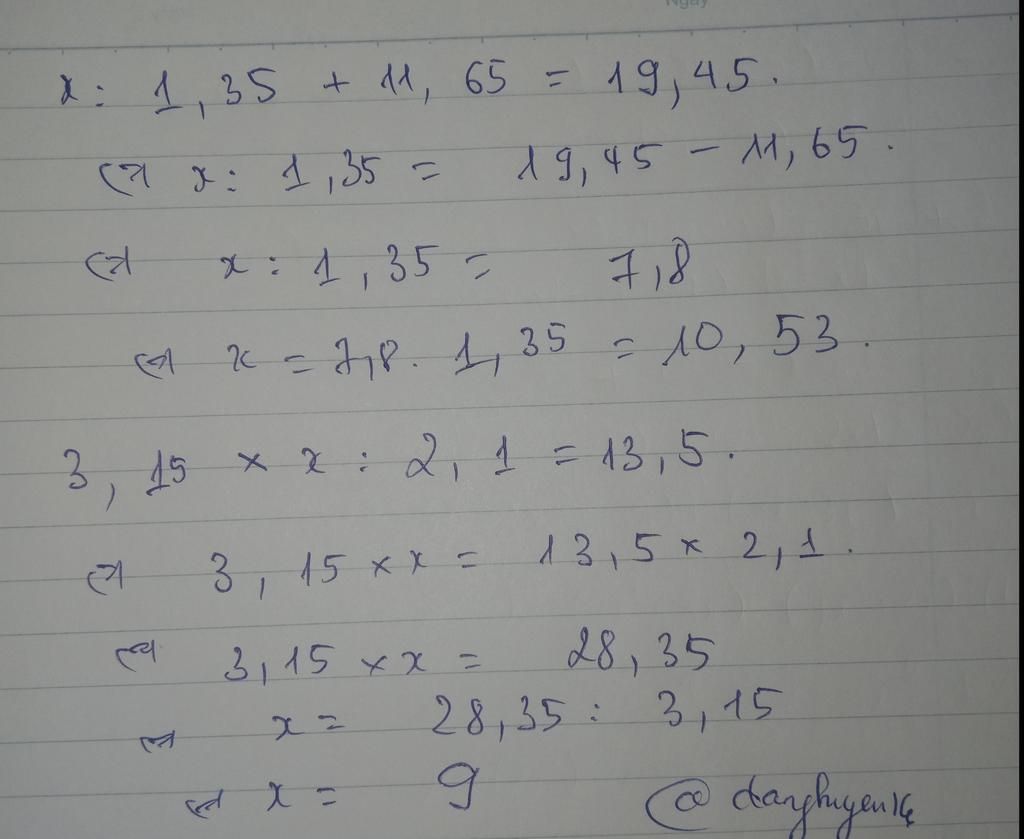 x : 1,35 + 11,65 = 19,45.
⇔ x : 1,35 = 19,45 - 11,65.
⇔ x : 1,35 = 7,8
⇔ x = 7,8 . 1,35 = 10,53.
3,15 × x : 2,1 = 13,5.
⇔ 3,15 × x = 13,5 × 2,1.
⇔ 3,15 × x = 28,35
⇔ x = 28,35 : 3,15
⇔ x = 9